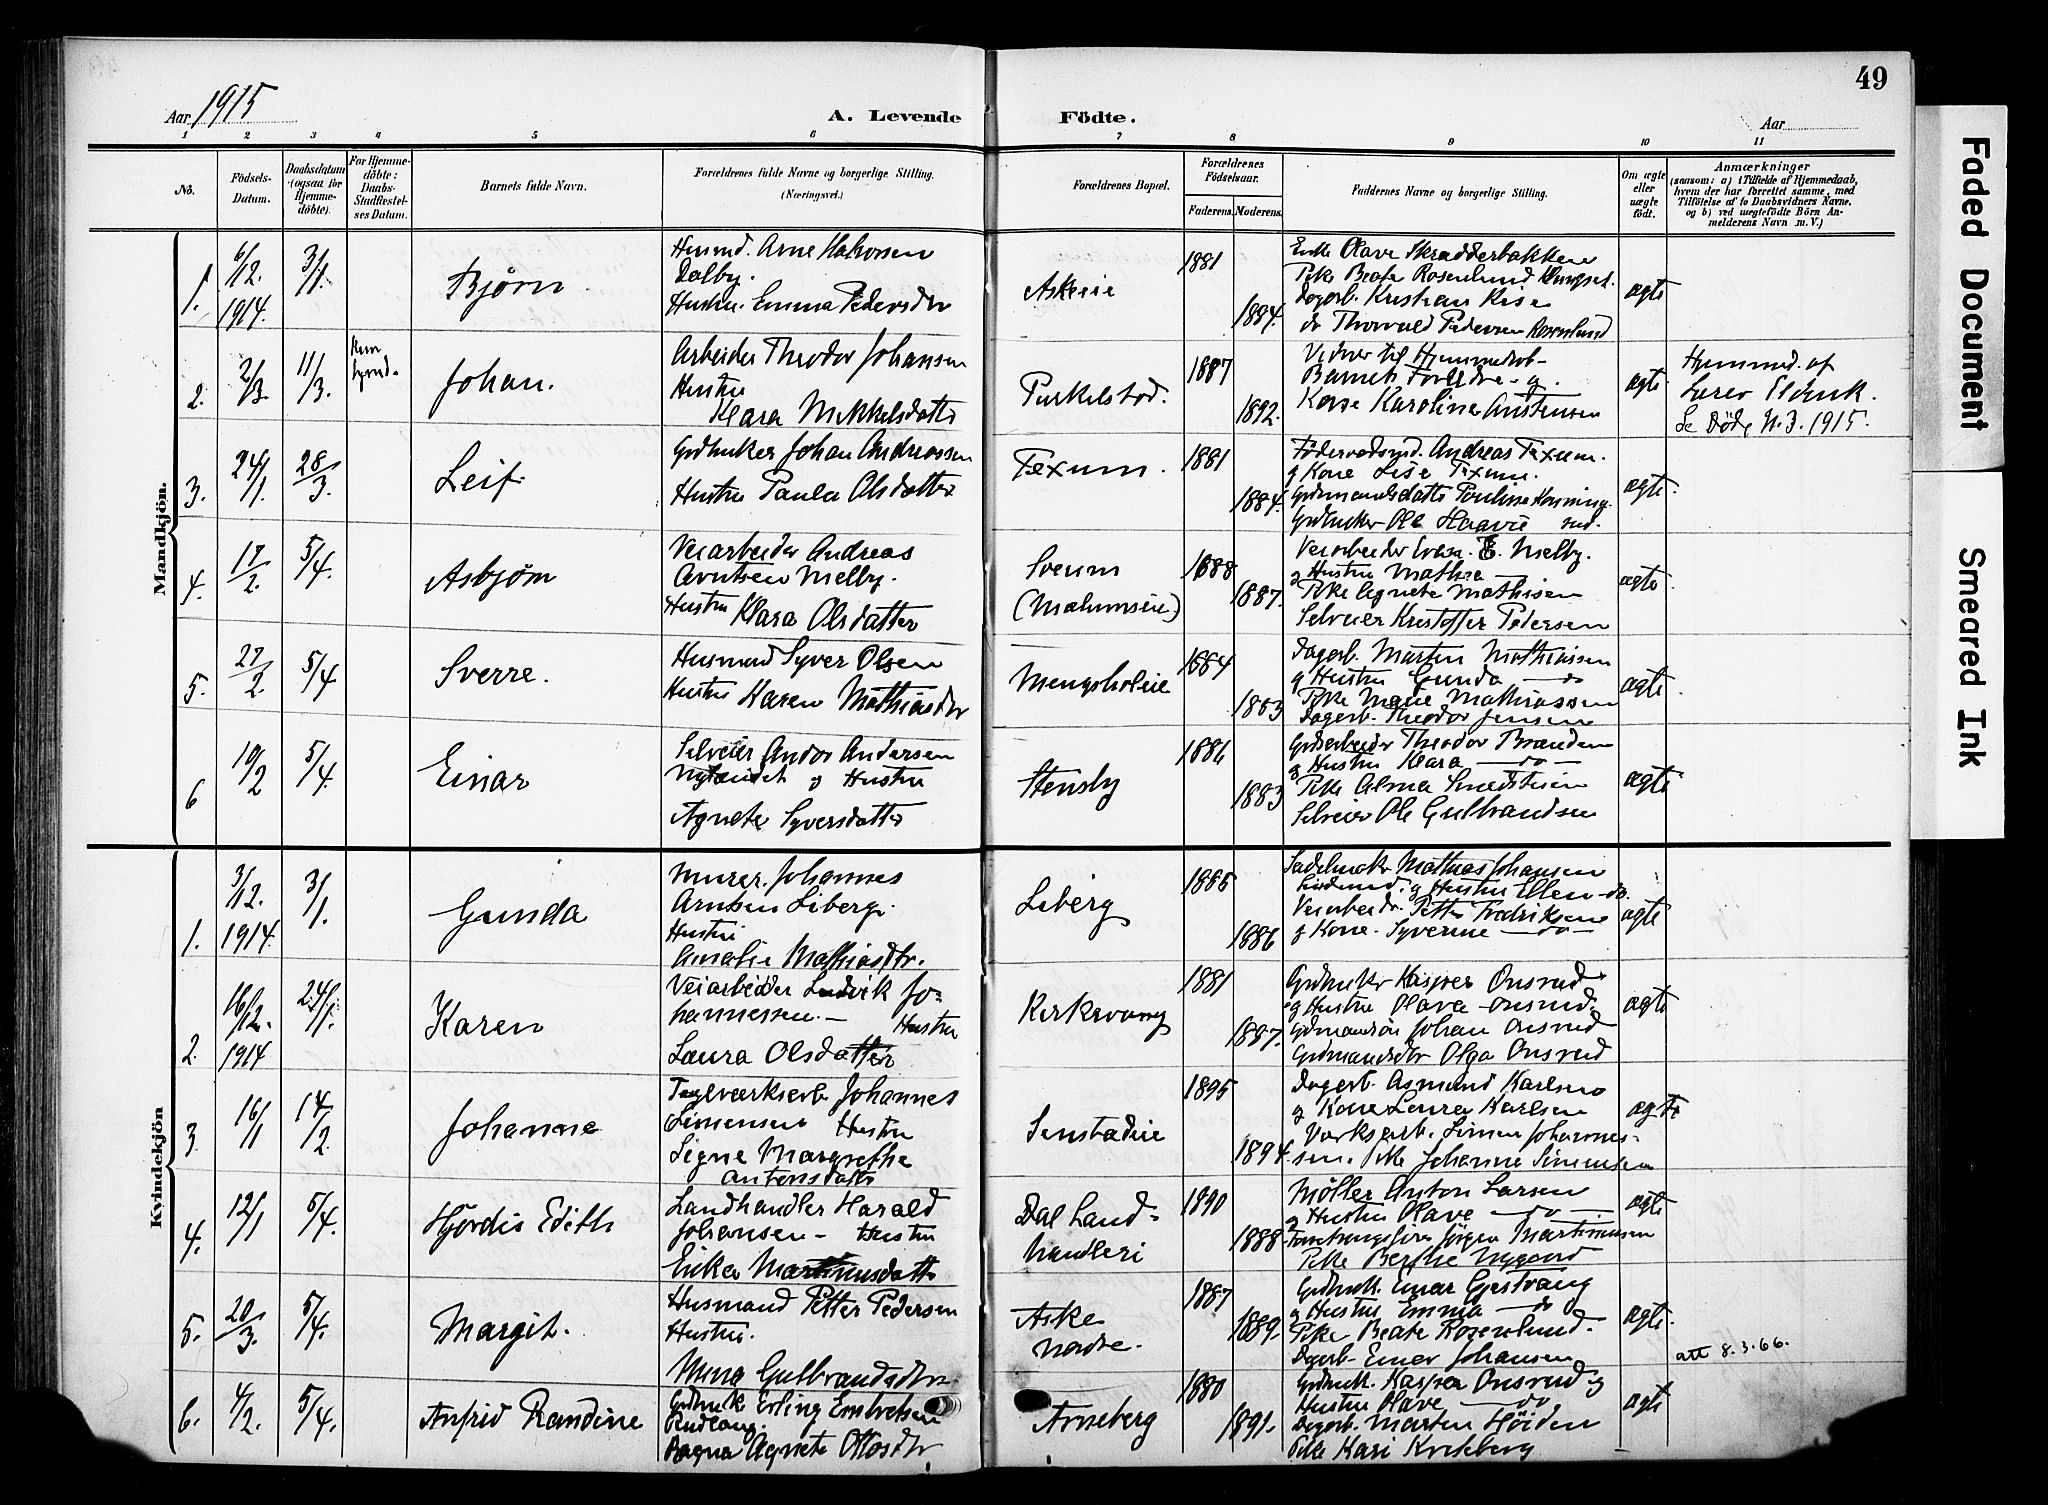 49
Aar 1915
A. Levende Födte.
Aar
1 2 3 4 5 6 7 8 9 10 11
No.
Födsels-Datum.
Daabsdatum (ogsaa for Hjemme-döbte).
For Hjemme-döbte: Daabs-Stadfæstel-ses Datum.
Barnets fulde Navn.
Forældrenes fulde Navne og borgerlige Stilling. (Næringsvei.)
Forældrenes Bopæl.
Forældrenes Födselsaar.
Faderens. Moderens.
Faddernes Navne og borgerlige Stilling.
Om ægte eller uægte födt.
Anmærkninger
(saasom: a) i Tilfælde af Hjemmedaab, hvem der har forrettet samme, med Tilföielse af to Daabsvidners Navne, og b) ved uægtefödte Börn An-melderens Navn m. V.)
Mandkjön.
1. 6/12. 1914. 3/1. Bjørn.
Husmd. Arne Halvorsen
Dalby.
Hustru. Emma Pedersdtr
Askeie 1881 1884.
Enke Olave Skrædderbakken
Pike Beate Rosenlund
Dagarb. Kristian
do Thorvald Pedersen Rosenlund
ægte
2. 2/3. 11/3. Johan.
Arbeider Theodor Johansen
Hustru
Klara Mikkelsdatter
Purkelstad. 1887 1892.
Vidner til Hjemmedåb-
Barnets Forældre og
Kone Karoline Austensen
ægte
Hjemmd. af
Lærer
Se Døde N. 3. 1915.
3. 24/1. 28/3. Leif
Grdbruker Johan Andreassen
Hustru Paula Olsdatter
Texum. 1881 1884.
Andreas Texum.
og Kone Lise Texum.
Grdmandsdatter Pouline
Grdbruker Ole
ægte.
4. 17/2. 5/4. Asbjørn
Veiarbeider Andreas
Arntsen Melby.
Hustru Klara Olsdatter
Sverum
(Mælumseie)
1888 1887.
Veiarbeider E. Melby.
og Hustru Mathea
Pike Agnete Mathisen
Selveier Kristoffer Pedersen
ægte
5. 27/2. 5/4 Sverre.
Husmand Syver Olsen
Hustru Karen Mathiasdtr
Mengsholeie 1884 1883
Dagarb. Martin Mathiassen
og Hustru Gunda — do
Pike Marie Mathiassen
Dagarb. Theodor Jensen
ægte.
6 10/2 5/4. Einar
Selveier Andor Andersen
Nylændet og Hustru
Agnete Syversdatter
Stensby 1886 1883
Grdsarbeider Theodor Brænden
og Hustru Klara — do —
Pike Alma
Selveier Ole Gulbrandsen
ægte
Kvindekjön
1. 3/12. 1914. 3/1. Gunda
Murer. Johannes
Arntsen Liberg.
Hustru
Amalie Mathiasdtr.
Liberg 1885 1886
Sadelmaker Mathias Johansen
og Hustru Ellen do.
Veiarbeider Petter Fredriksen
og Kone. Syverine — do —
ægte
2. 16/12. 1914 24/1. Karen
Veiarbeider Ludvik Jo-
hannessen. — Hustru
Laura Olsdatter
Kirkevang 1881 1887.
Grdbruker Kasper Onsrud
og Hustru Olave Onsrud
Grdmandsøn Johan Onsrud
Grdmandsdtr Olga Onsrud
ægte
3 16/1 14/2 Johanne
Teglverksarb Johannes
Simensen Hustru
Signe Margrethe
Antonsdatter
1895 1894.
Dagarb. Asmund Karlsen
og Kone Laura Karlsen
Verksarb. Simen Johannes-
sen. Pike Johanna Simensen
ægte
4. 12/1 5/4. Hjørdis Edith
Landhandler Harald
Johansen — Hustru
Erika Martinusdatter
Dal Land-
handleri
1890 1888
Møller Anton Larsen
og Hustru Olave — do —
Jörgen Martinussen
Pike Berthe Nygaard
ægte
5. 20/3. 5/4. Margit.
Husmand Petter Pedersen
Hustru.
Mina Gulbrandsdtr
Aske
nordre.
1887 1889.
Grdbruk. Einar Gjestvang
og Hustru Emma — do
Pike Beate Rosenlund.
Dagarb. Einar Johansen
ægte.
att 8.3.66.
6. 4/2. 5/4. Anfrid Randine
Grdbruk Erling Embretsen
Agnete Ottosdtr
Arneberg 1880 1891.
Grdbruk. Kasper Onsrud og
Hustru Olave — do
Dagarb. Martin Höiden
Pike Kari
ægte
Faded Document
Smeared Ink